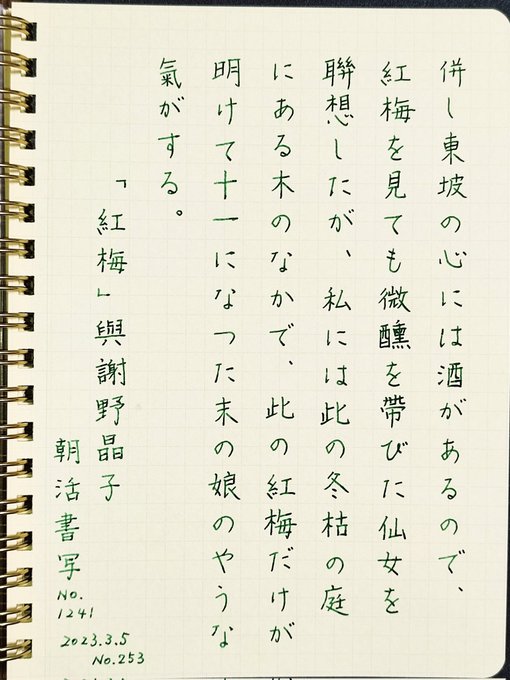 併し東坡の心には酒があるので、
紅梅を見ても微醺を帶びた仙女を
聯想したが、私には此の冬枯の庭
にある木のなかで、此の紅梅だけが
明けて十一になつた末の娘のやうな
氣がする。
「紅梅」與謝野晶子
朝活書写
No.
1241
2023.3.5
No.253